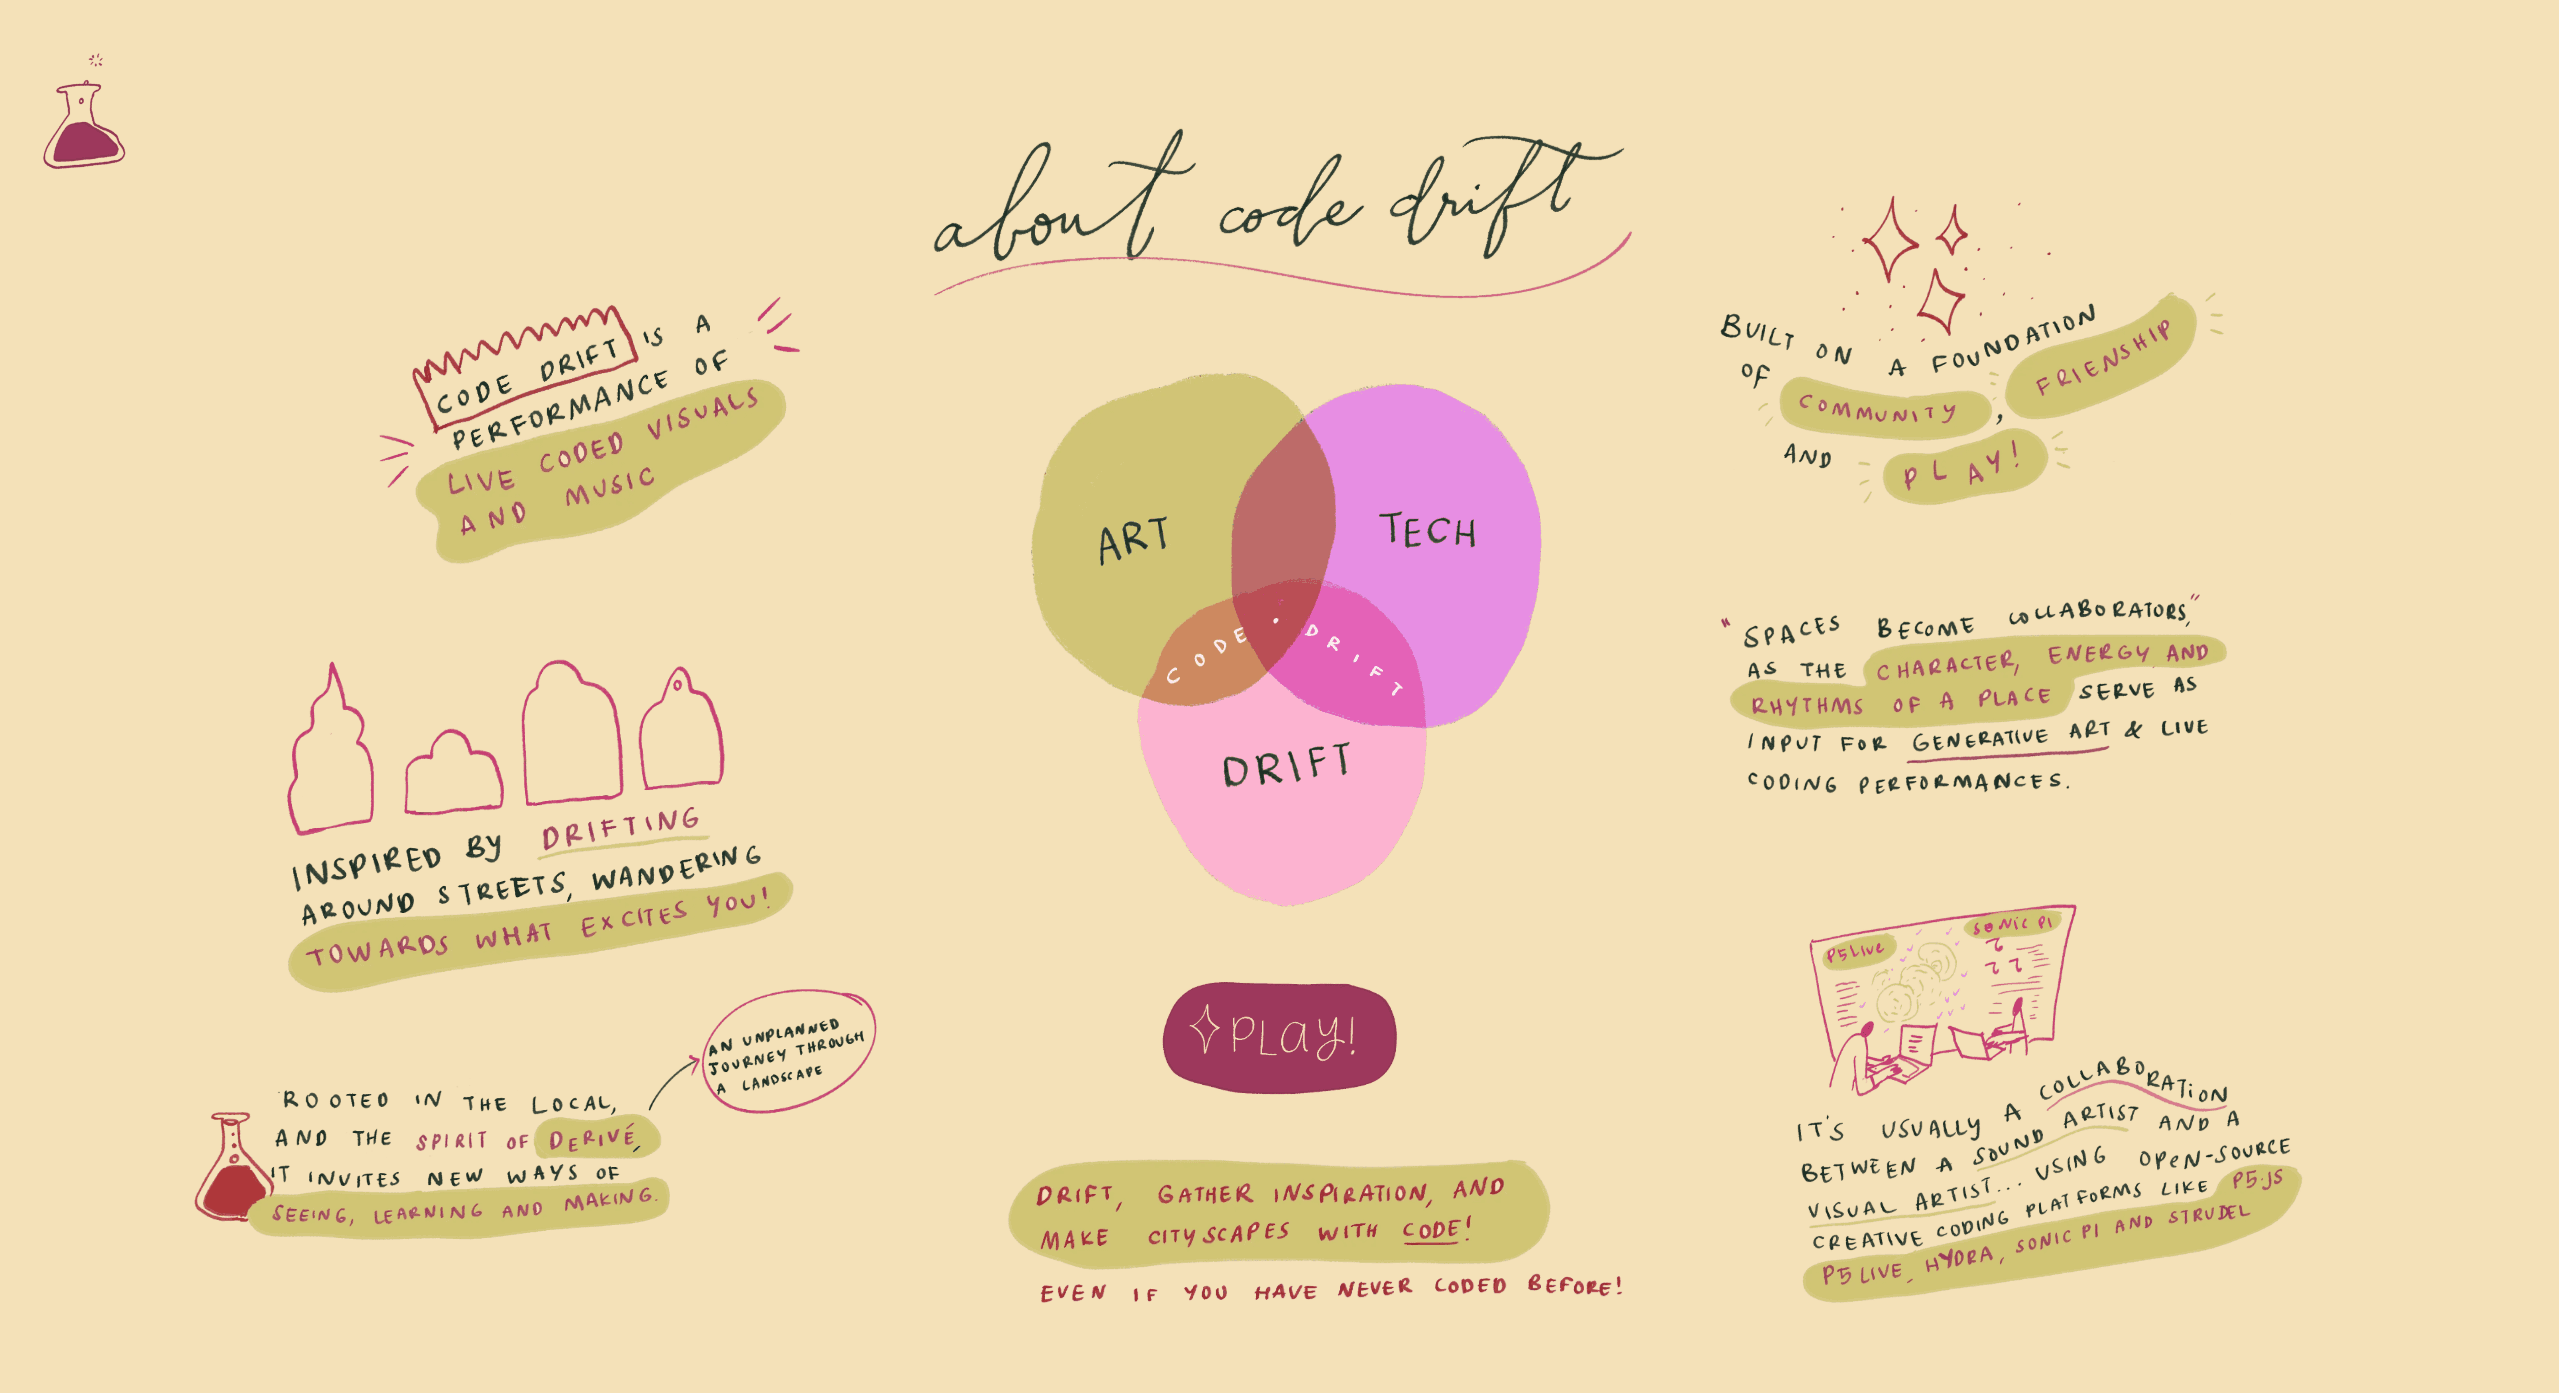 about code drift
CODE DRIFT IS A
PERFORMANCE OF
LIVE CODED VISUALS
AND MUSIC
INSPIRED BY DRIFTING
AROUND STREETS, WANDERING
TOWARDS WHAT EXCITES YOU!
ROOTED IN THE LOCAL,
AND THE SPIRIT OF DERIVÉ,
IT INVITES NEW WAYS OF
SEEING, LEARNING AND MAKING.
AN UNPLANNED
JOURNEY THROUGH
A LANDSCAPE
ART
TECH
CODE · DRIFT
DRIFT
PLAY!
DRIFT, GATHER INSPIRATION, AND
MAKE CITYSCAPES WITH CODE!
EVEN IF YOU HAVE NEVER CODED BEFORE!
BUILT ON A FOUNDATION
OF COMMUNITY, FRIENSHIP
AND PLAY!
"SPACES BECOME COLLABORATORS,"
AS THE CHARACTER, ENERGY AND
RHYTHMS OF A PLACE SERVE AS
INPUT FOR GENERATIVE ART & LIVE
CODING PERFORMANCES.
P5LIVE
SONIC PI
IT'S USUALLY A COLLABORATION
BETWEEN A SOUND ARTIST AND A
VISUAL ARTIST... USING OPEN-SOURCE
CREATIVE CODING PLATFORMS LIKE P5.JS
P5LIVE, HYDRA, SONIC PI AND STRUDEL